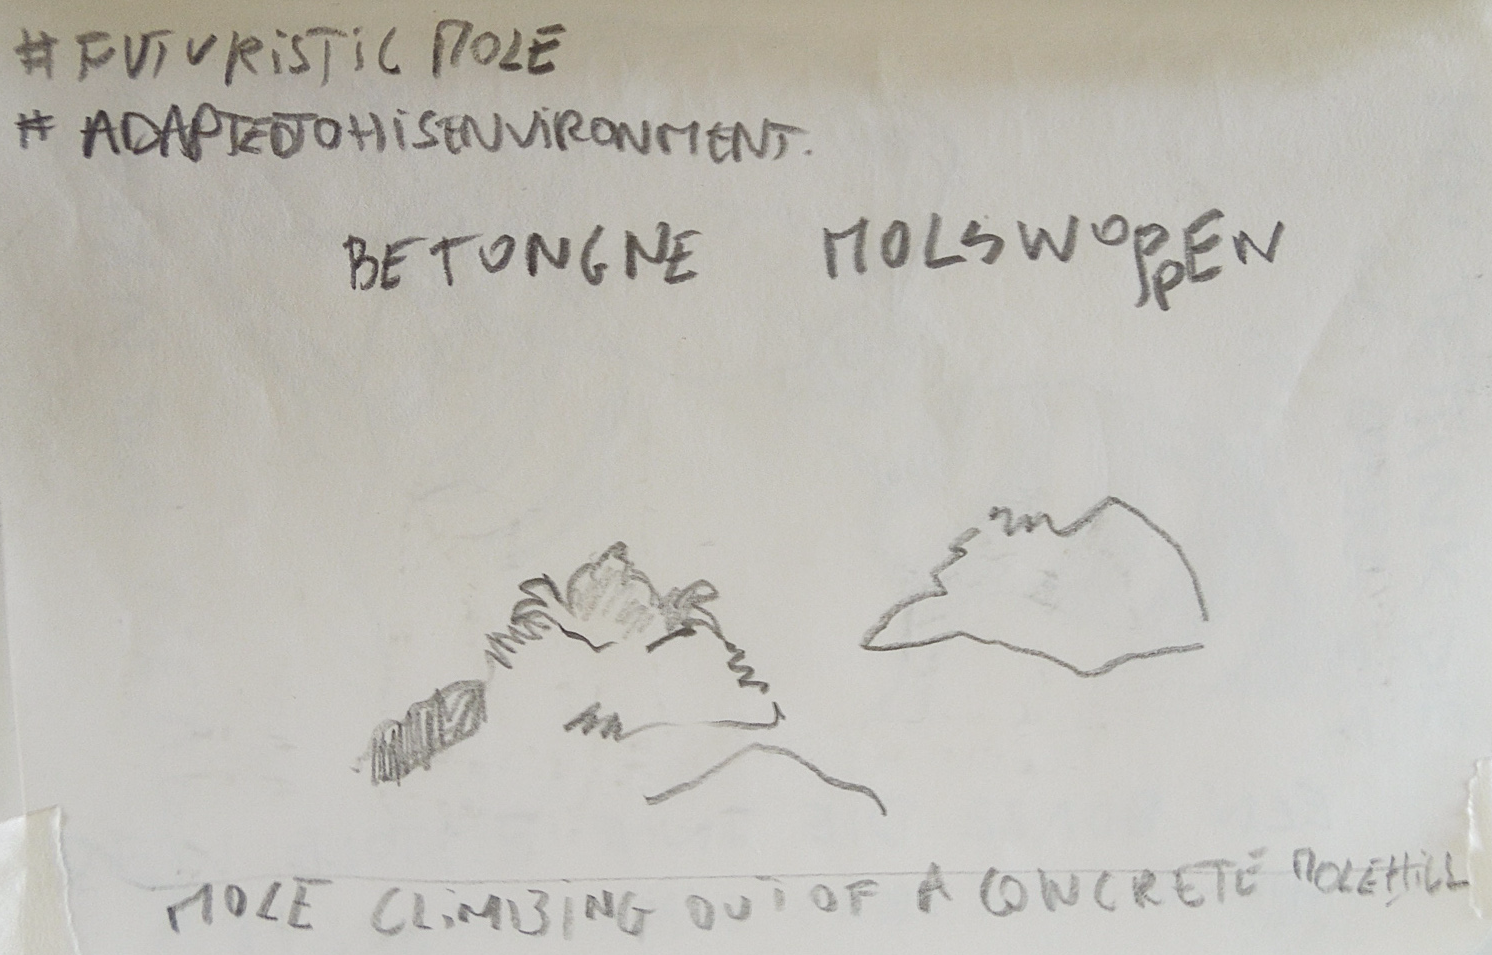 # FUTURISTIC MOLE
# ADAPTEDTOHISENVIRONMENT.
BETONGNE MOLSWOPPEN
MOLE CLIMBING OUT OF A CONCRETE MOLEHILL